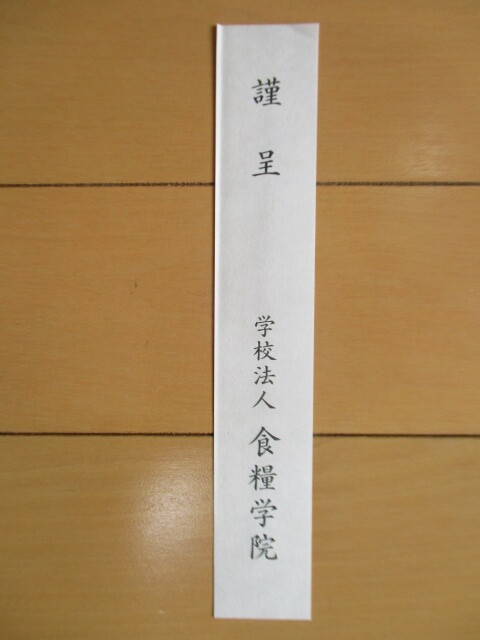 謹呈
学校法人 食糧学院